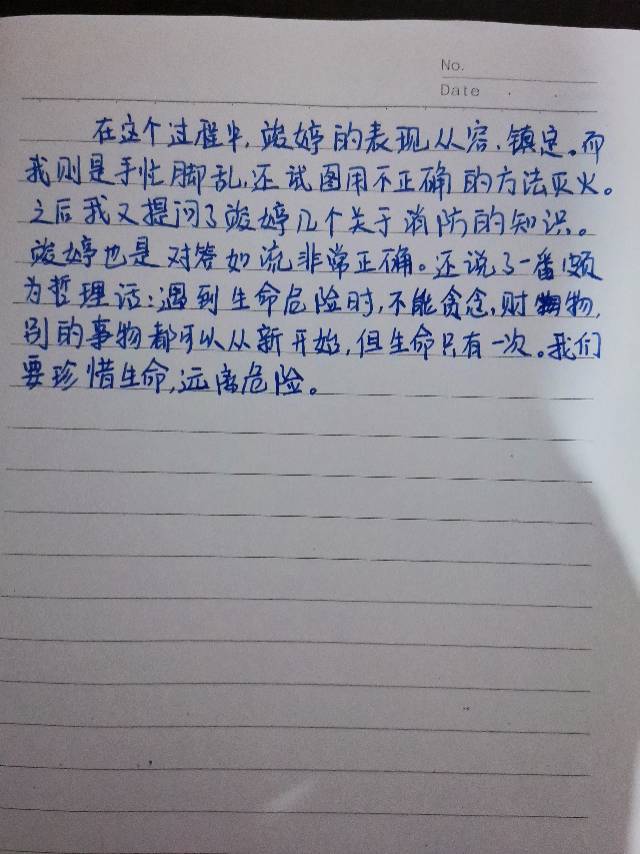 No.
Date
在这个过程中,竣婷的表现从容、镇定。而
我则是手忙脚乱,还试图用不正确的方法灭火。
之后我又提问了竣婷几个关于消防的知识。
竣婷也是对答如流非常正确。还说了一番颇
为哲理话:遇到生命危险时,不能贪念,财物,
别的事物都可以从新开始,但生命只有一次。我们
要珍惜生命,远离危险。